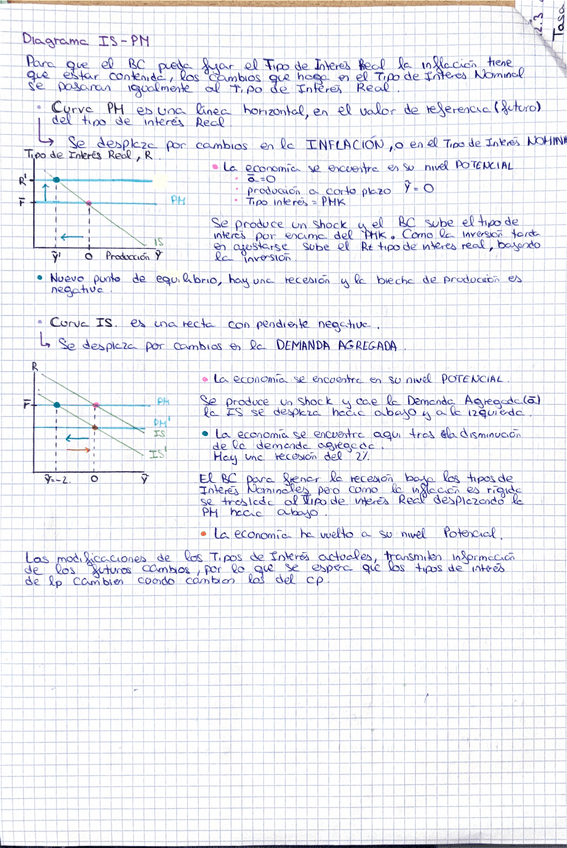 Diagrama IS-PM
Para que el BC pueda fijar el Tipo de Interés Real la inflación tiene
que estar contenida, los cambios que haga en el Tipo de Interés Nominal
se pasaran igualmente al Tipo de Interés Real.
• Curva PM es una línea horizontal, en el valor de referencia (futuro)
del tipo de interés Real
↳ Se desplaza por cambios en la INFLACIÓN, o en el Tipo de Interés NOMINA
Tipo de Interés Real, R
R'
r̅
PM
IS
Ỹ' 0 Producción Ỹ
• La economía se encuentra en su nivel POTENCIAL
• a̅=0
• producción a corto plazo Ỹ=0
• Tipo interés = PMK
Se produce un shock y el BC sube el tipo de
interés por encima del PMK. Como la inversión tarda
en ajustarse sube el Rt tipo de interés real, bajando
la inversión
• Nuevo punto de equilibrio, hay una recesión y la brecha de producción es
negativa.
• Curva IS. es una recta con pendiente negativa.
↳ Se desplaza por cambios en la DEMANDA AGREGADA.
R
r̅
PM
PM'
IS
IS'
Ỹ=-2 0 Ỹ
• La economía se encuentra en su nivel POTENCIAL
Se produce un shock y cae la Demanda Agregada (a̅)
la IS se desplaza hacia abajo y a la izquierda.
• La economía se encuentra aquí tras la disminución
de la demanda agregada.
Hay una recesión del 2%
El BC para frenar la recesión baja los tipos de
Interés Nominales, pero como la inflación es rígida
se traslada al Tipo de interés Real desplazando la
PM hacia abajo.
• La economía ha vuelto a su nivel Potencial.
Las modificaciones de los Tipos de Interés actuales, transmiten información
de los futuros cambios, por lo que se espera que los tipos de interés
de lp cambien cuando cambien los del cp.
2.3
Tasa